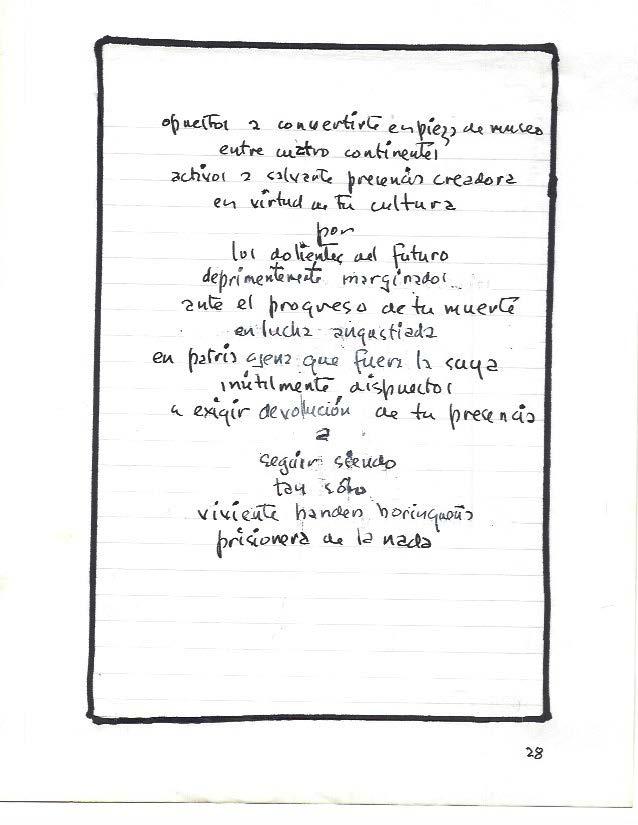 opuestos a convertirte en pieza de museo
entre cuatro continentes
activos a salvarte presencia creadora
en virtud de tu cultura
por
los dolientes del futuro
deprimentemente marginados
ante el progreso de tu muerte
en lucha angustiada
en patria ajena que fuera la suya
inútilmente dispuestos
a exigir devolución de tu presencia
a
seguir siendo
tan sólo
viviente bandera borinqueña
prisionera de la nada
28